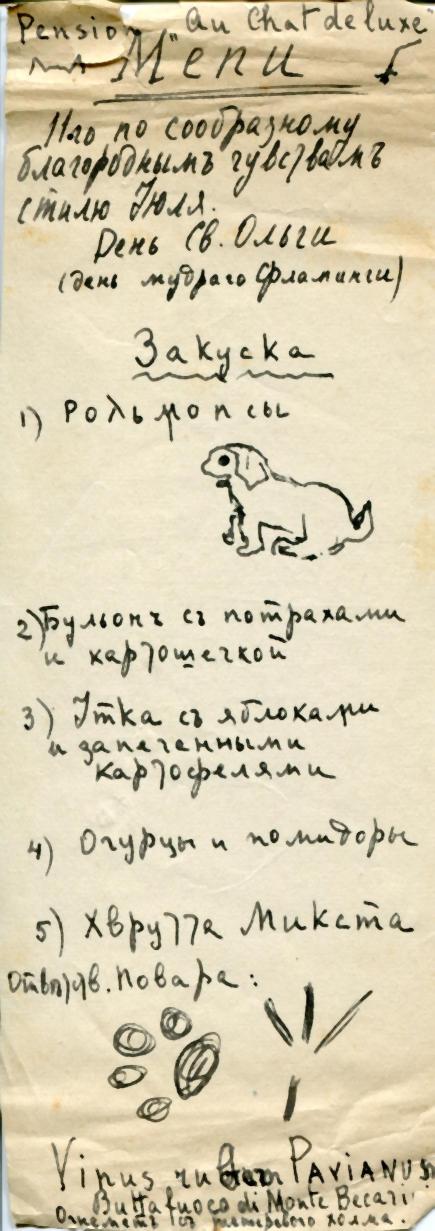 Pension "Au Chat de luxe"
Menu
11го по сообразному
благороднымъ чувствамъ
стилю Iюля.
День Св. Ольги
(день мудраго Фламинги)
Закуска
1) Рольмопсы
2) Бульонъ съ потрахами
и картошечкой
3) Утка съ яблоками
и запеченными
картофелями
4) Огурцы и помидоры
5) Хврутта Микста
Отвътств. повара:
Vinus PAVIANUS
Buttafuoco di Monte Becari
Огнеметъ съ холма.